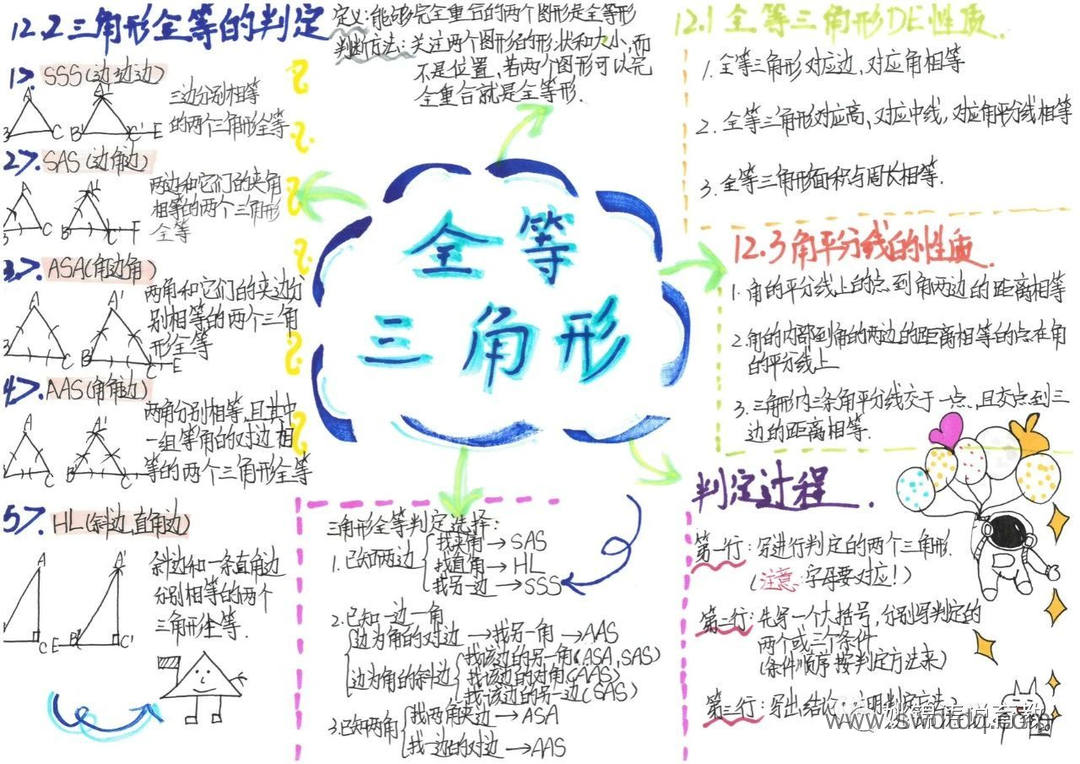 12.2三角形全等的判定
1>. SSS(边边边)
A
A'
B
C
B'
C'
E
三边分别相等
的两个三角形全等
2>. SAS(边角边)
A
A'
B
C
B'
C'
F
两边和它们的夹角
相等的两个三角形
全等
3>. ASA(角边角)
A
A'
B
C
B'
C'
E
两角和它们的夹边分
别相等的两个三角
形全等
4>. AAS(角角边)
A
A'
B
C
B'
C'
两角分别相等,且其中
一组等角的对边相
等的两个三角形全等
5>. HL(斜边,直角边)
A
A'
C
E
B'
C'
斜边和一条直角边
分别相等的两个
三角形全等.
定义:能够完全重合的两个图形是全等形
判断方法:关注两个图形的形状和大小,而
不是位置,若两个图形可以完
全重合就是全等形.
全等
三角形
三角形全等判定选择:
1.已知两边
找夹角→SAS
找直角→HL
找另一边→SSS
2.已知一边一角
边为角的对边→找另一角→AAS
边为角的斜边
找该边的另一角(ASA,SAS)
找该边的对角(AAS)
找该边的另一边(SAS)
3.已知两角
找两角夹边→ASA
找一边的对边→AAS
12.1全等三角形DE性质.
1.全等三角形对应边,对应角相等
2.全等三角形对应高、对应中线,对应角平分线相等
3.全等三角形面积与周长相等.
12.3角平分线的性质.
1.角的平分线上的点到角两边的距离相等
2.角的内部到角的两边的距离相等的点在角
的平分线上
3.三角形内三条角平分线交于一点、且交点到三
边的距离相等.
判定过程.
第一行:写进行判定的两个三角形.
(注意:字母要对应!)
第二行:先写一个大括号,分别写判定的
两个或三个条件
(条件顺序按判定方法来)
第三行:写出结论
www.swotdq.com